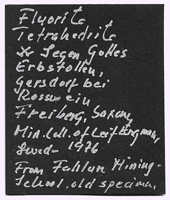 Fluorite
Tetrahedrite
Segen Gottes
Erbstollen,
Gersdorf bei
Rosswein
Freiberg, Saxony
Min. coll. of Leif Engman,
Swed- 1976
From Fahlun Mining-
School. old specimen,